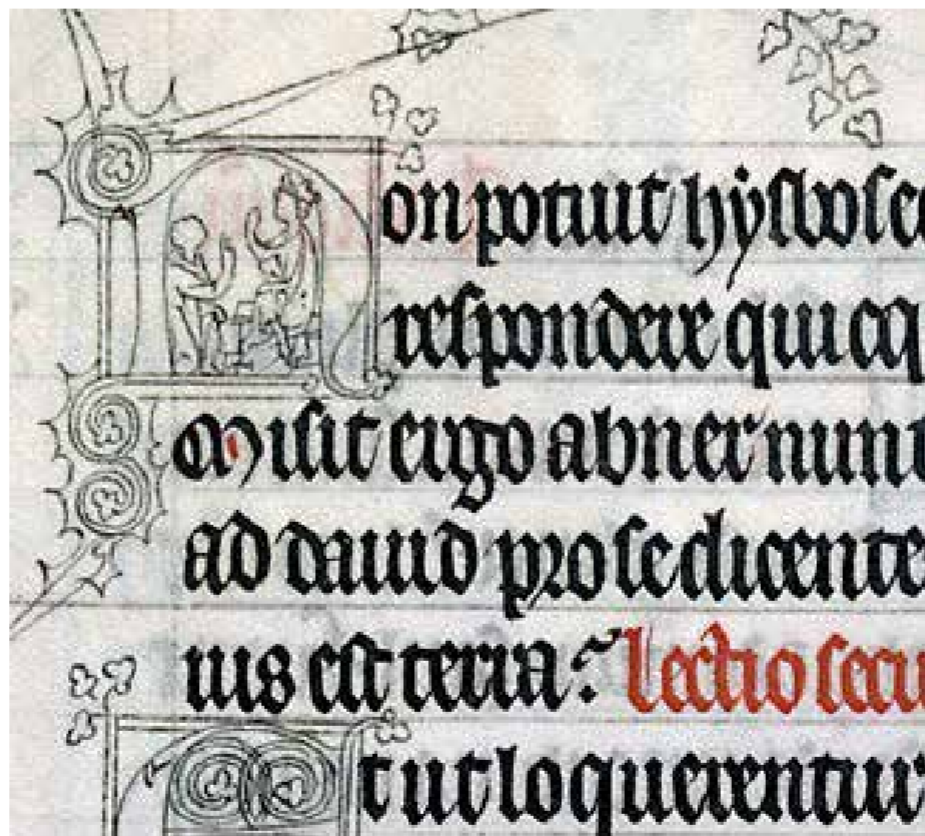 Non potuit hÿsbose
respondere quicq
Misit ergo abner nunt
ad dauid pro se dicente
ius est terra? lectio secu
Et ut loquerentur